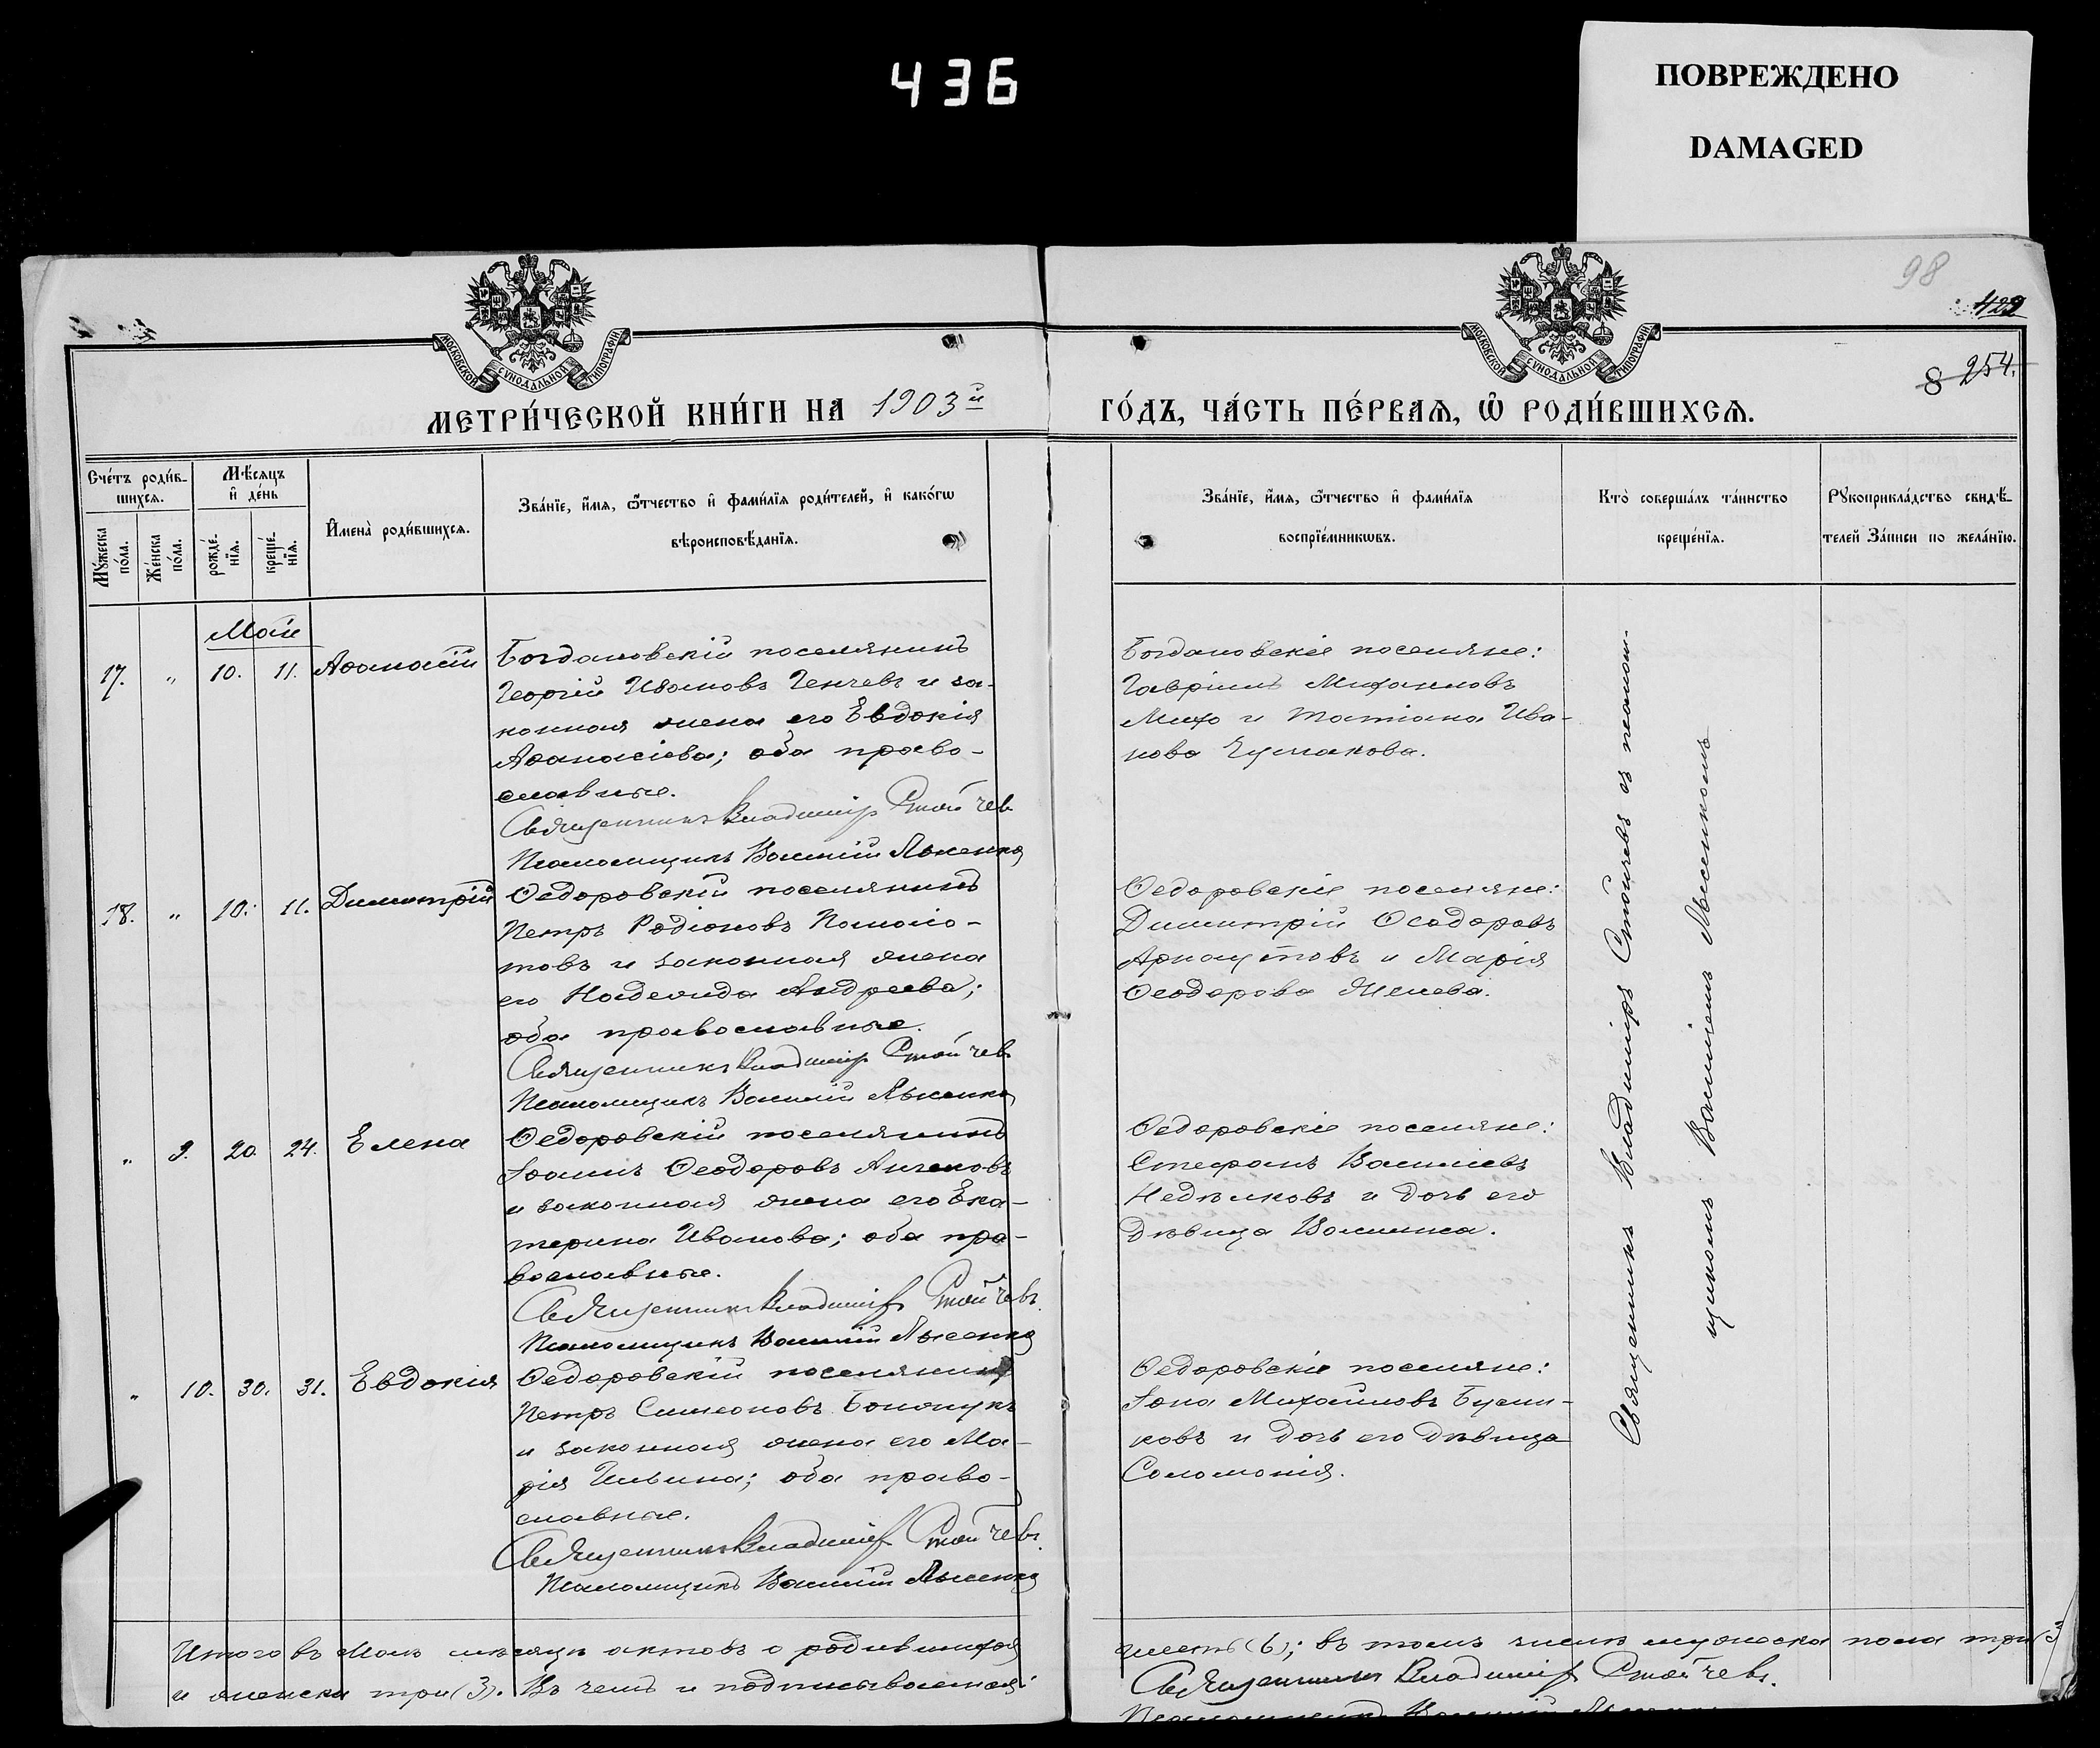 436
ПОВРЕЖДЕНО
DAMAGED
98
429
8 254.
МОСКОВСКОЙ СУНОДАЛЬНОЙ ТИПОГРАФИИ
МОСКОВСКОЙ СУНОДАЛЬНОЙ ТИПОГРАФИИ
МЕТРИ́ЧЕСКОЙ КНИ́ГИ НА 1903й ГО́ДЪ, ЧА́СТЬ ПЕ́РВАѦ, Ѡ҆ РОДИ́ВШИХСѦ.
Сче́тъ роди́в-
шихсѧ.
Мѣ́сѧцъ
и҆ де́нь
Мꙋ́жеска
по́ла.
Же́нска
по́ла.
рожде́-
нїѧ.
креще́-
нїѧ.
И҆мена̀ роди́вшихсѧ.
Зва́нїе, и҆́мѧ, ѻ҆́тчество и҆ фами́лїѧ роди́телей, и҆ како́гѡ
вѣроисповѣ́данїѧ.
Зва́нїе, и҆́мѧ, ѻ҆́тчество и҆ фами́лїѧ
воспрїе́мникѡвъ.
Кто̀ соверша́лъ та́инство
креще́нїѧ.
Рꙋкоприкла́дство свидѣ́-
телей За́писи по жела́нїю.
Май
17. " 10. 11. Аѳанасій
Богдановскій поселянинъ
Георгій Ивановъ Генчевъ и за-
конная жена его Евдокія
Аѳанасіева; оба право-
славные.
Священникъ Владиміръ Стойчевъ
Псаломщикъ Василій Лысенко
Богдановскіе поселяне:
Гавріилъ Михаиловъ
Михо и Татіана Ива-
нова Чумакова.
18. " 10. 11. Димитрій
Ѳедоровскій поселянинъ
Петръ Родіоновъ
и законная жена
его Надежда Андреева;
оба православные.
Священникъ Владиміръ Стойчевъ
Псаломщикъ Василій Лысенко
Ѳедоровскіе поселяне:
Димитрій Ѳеодоровъ
Арнаутовъ и Марія
Ѳеодорова Желева.
" 9. 20. 24. Елена
Ѳедоровскій поселянинъ
Іоаннъ Ѳеодоровъ Ангеловъ
и законная жена его Ека-
терина Иванова; оба пра-
вославные.
Священникъ Владиміръ Стойчевъ.
Псаломщикъ Василій Лысенко
Ѳедоровскіе поселяне:
Стефанъ Василіевъ
Недѣлковъ и дочь его
дѣвица Василиса.
" 10. 30. 31. Евдокія
Ѳедоровскій поселянинъ
Петръ Симеоновъ
и законная жена его Ма-
рія Ильина; оба право-
славные.
Священникъ Владиміръ Стойчевъ.
Псаломщикъ Василій Лысенко
Ѳедоровскіе поселяне:
Іона Михайловъ
и дочь его дѣвица
Соломонія.
Священникъ Владиміръ Стойчевъ съ псалом-
щикомъ Василіемъ Лысенкомъ
Итого въ Маѣ мѣсяцѣ актовъ о родившихся шесть (6); въ томъ числѣ мужеска пола три (3)
и женска три (3). Въ чемъ и подписываемся:
Священникъ Владиміръ Стойчевъ.
Псаломщикъ Василій Лысенко